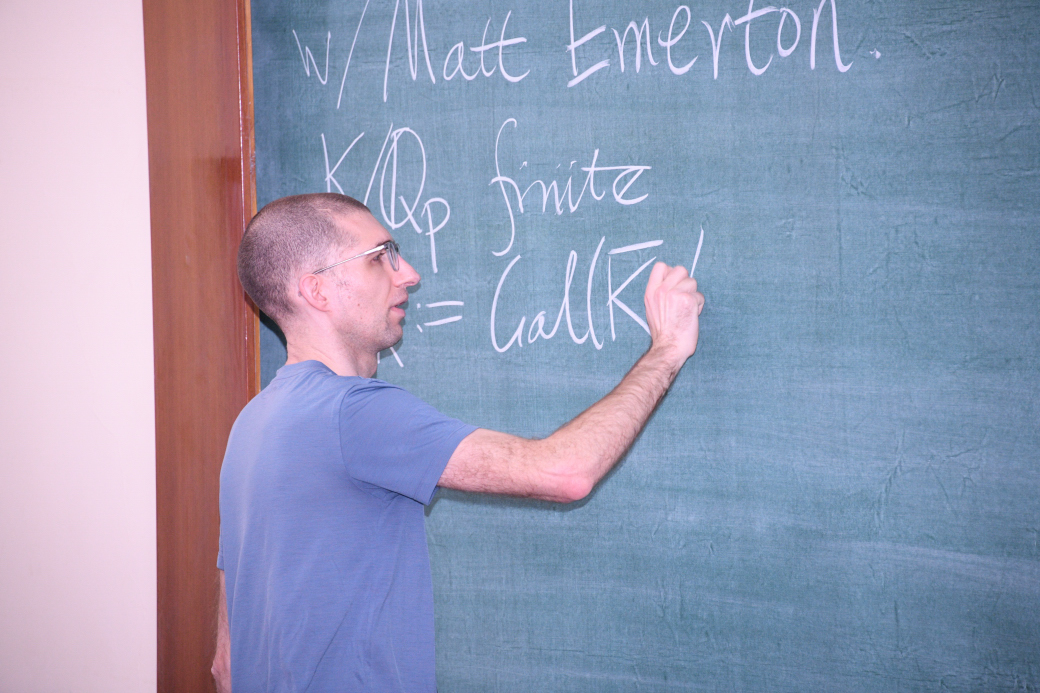 w/ Matt Emerton.
K/Qp finite
K := Gal(K̅/